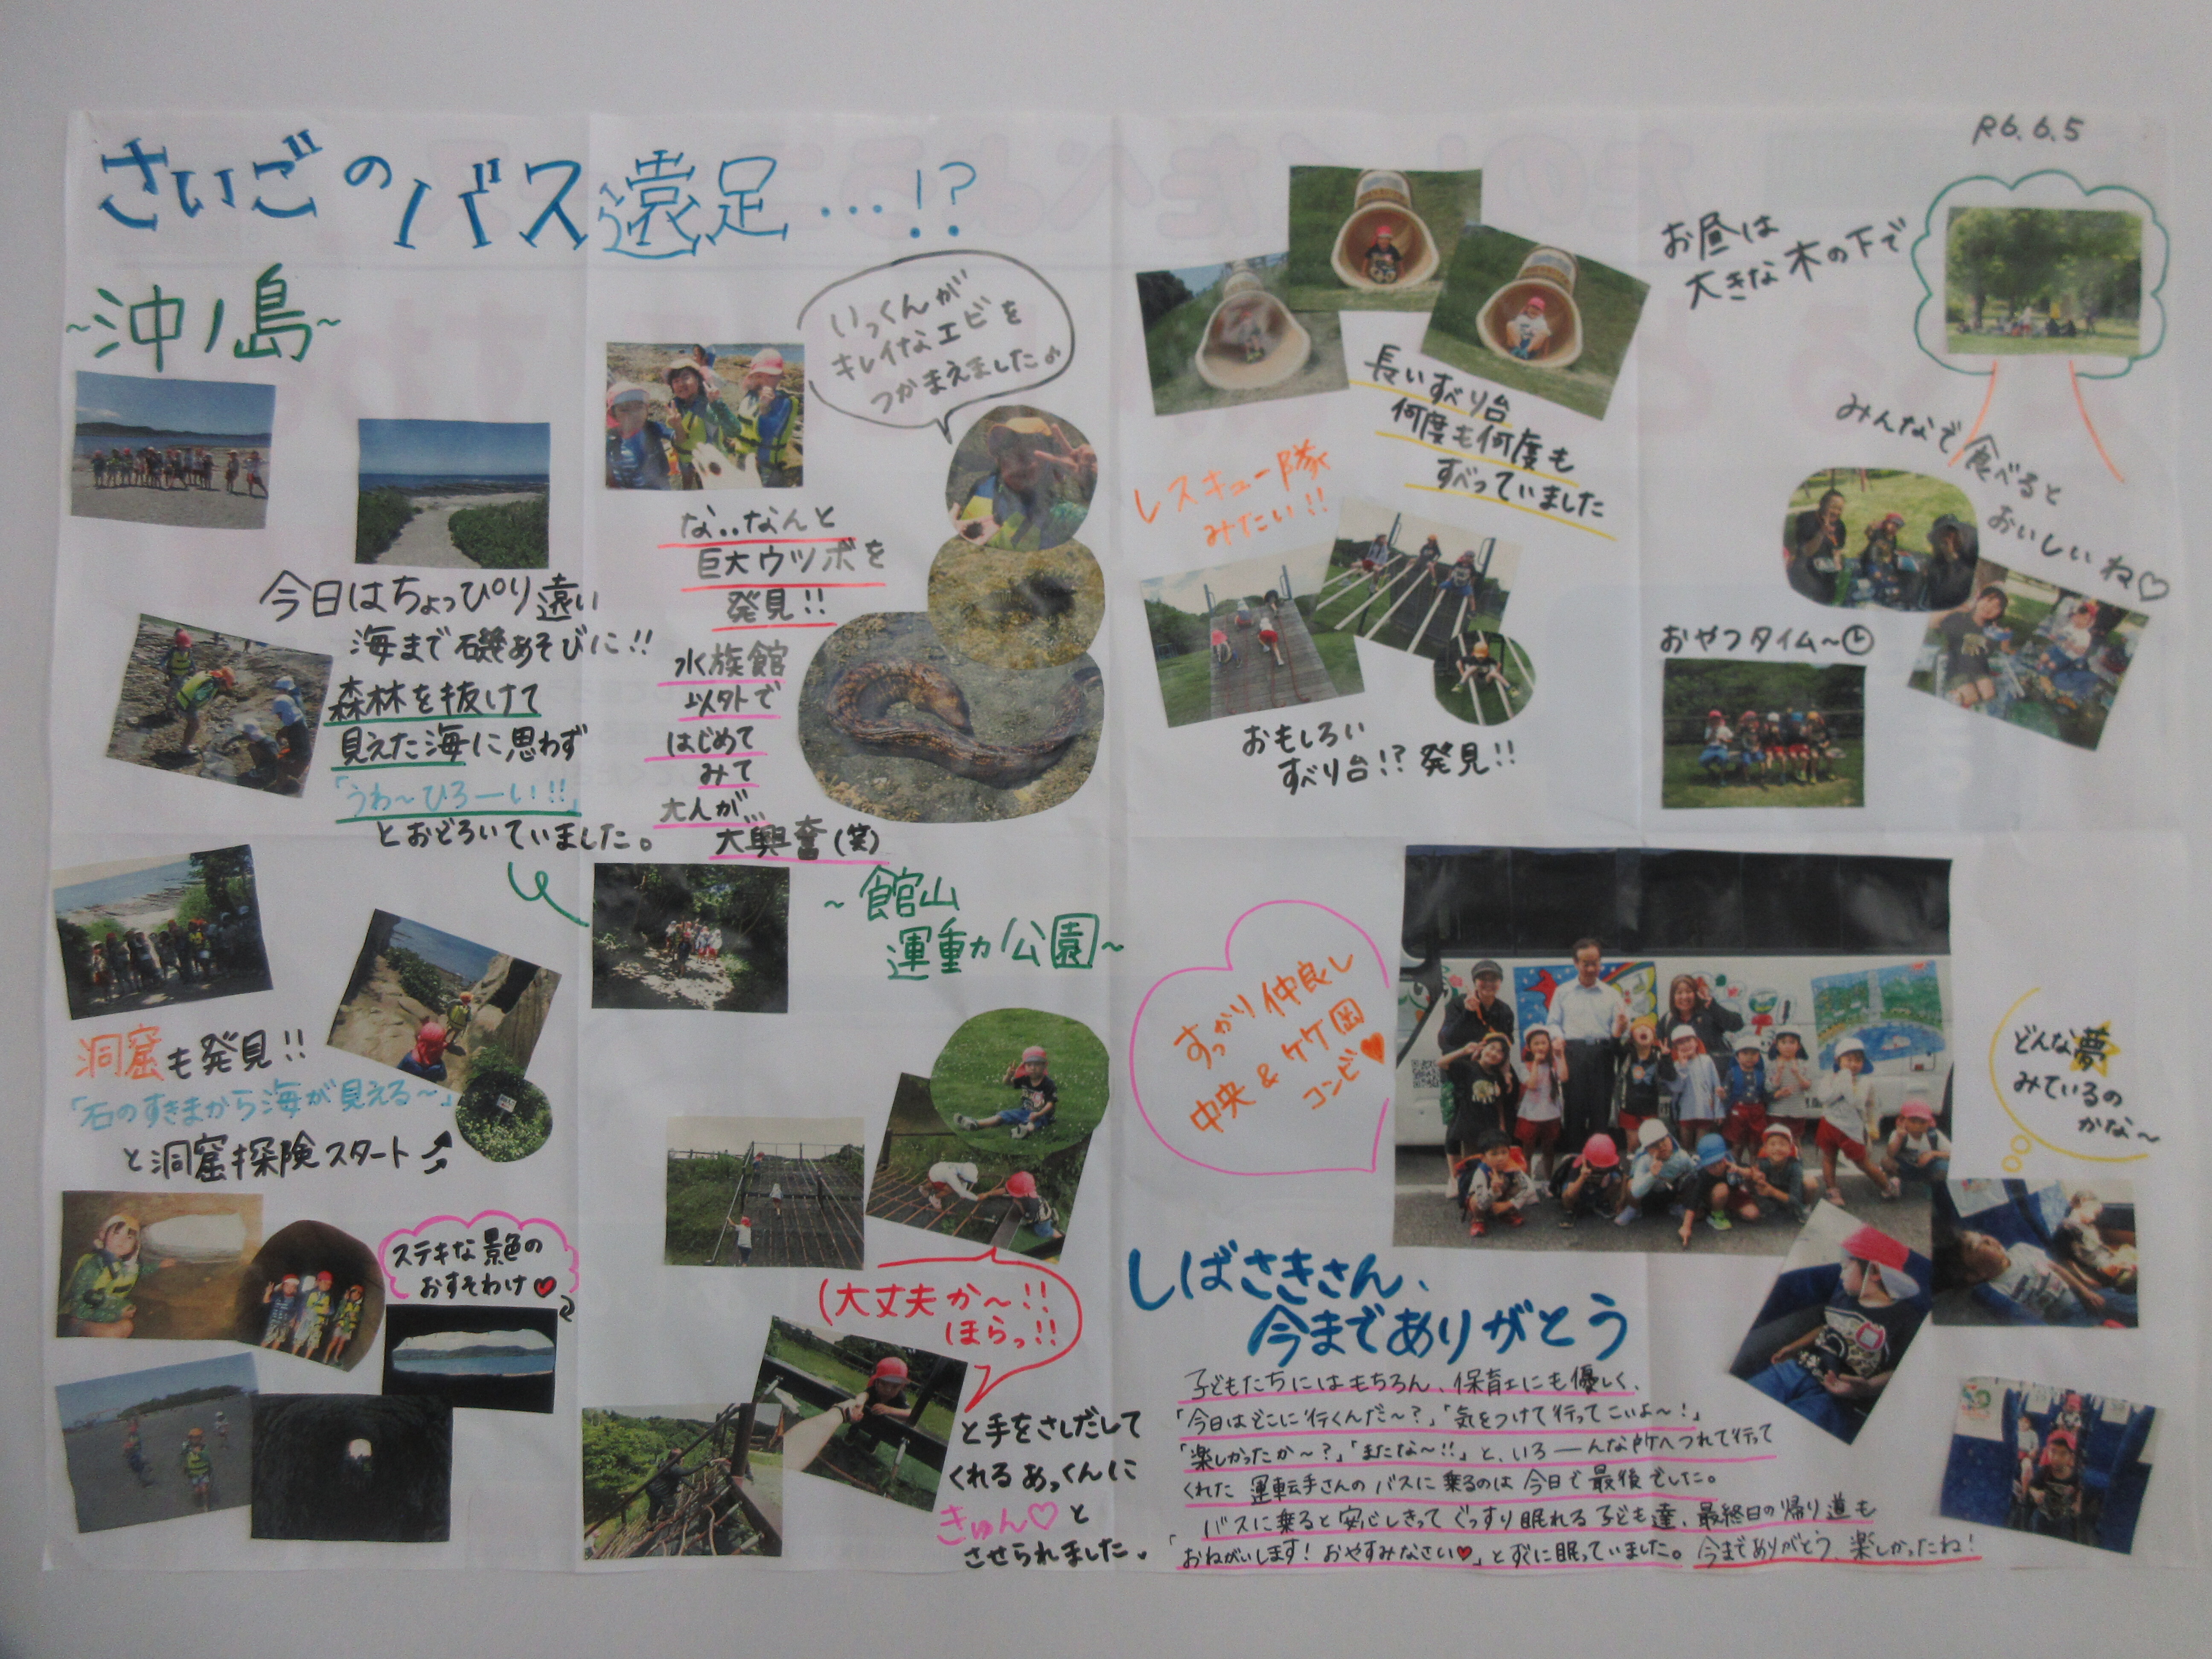 R6.6.5
さいごのバス遠足…!?
~沖ノ島~
今日はちょっぴり遠い
海まで磯あそびに!!
森林を抜けて
見えた海に思わず
「うわ~ひろーい!!」
とおどろいていました。
いっくんが
キレイなエビを
つかまえました♪
な..なんと
巨大ウツボを
発見!!
水族館
以外で
はじめて
みて
大人が…
大興奮(笑)
洞窟も発見!!
「石のすきまから海が見える~」
と洞窟探険スタート
ステキな景色の
おすそわけ♥
~館山
運動公園~
(大丈夫か~!!
ほらっ!!
と手をさしだして
くれるあっくんに
きゅん♡と
させられました。
長いすべり台
何度も何度も
すべっていました
レスキュー隊
みたい!!
おもしろい
すべり台!?発見!!
お昼は
大きな木の下で
みんなで食べると
おいしいね♡
おやつタイム~
すっかり仲良し
中央&ケケ岡
コンビ♥
どんな夢
みているの
かな~
しばさきさん、
今までありがとう
子どもたちにはもちろん、保育士にも優しく、
「今日はどこに行くんだ~?」「気をつけて行ってこいよ~!」
「楽しかったか~?」「またな~!!」と、いろーんな所へつれて行って
くれた 運転手さんのバスに乗るのは今日で最後でした。
バスに乗ると安心しきってぐっすり眠れる子ども達、最終日の帰り道も
「おねがいします!おやすみなさい♥」とすぐに眠っていました。今までありがとう、楽しかったね!